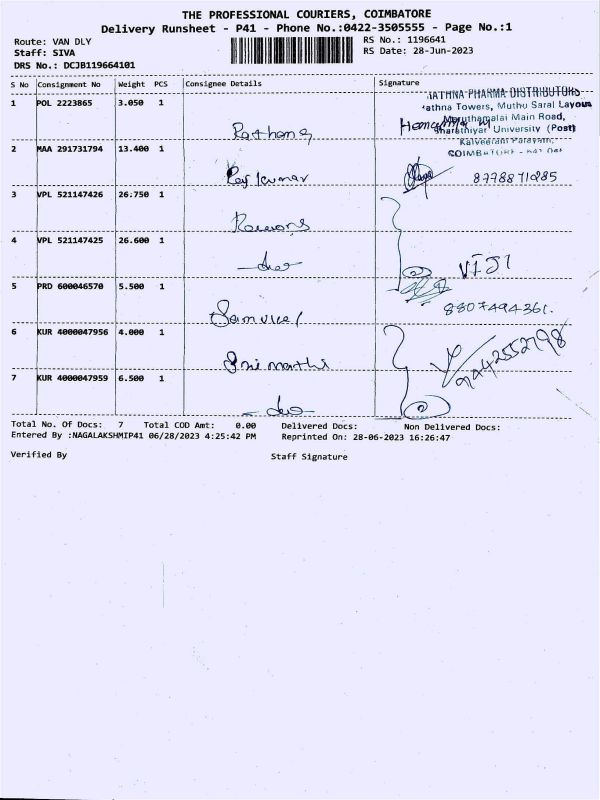 THE PROFESSIONAL COURIERS, COIMBATORE
Delivery Runsheet - P41 - Phone No.:0422-3505555 - Page No.:1
Route: VAN DLY
RS No.: 1196641
Staff: SIVA
RS Date: 28-Jun-2023
DRS No.: DCJB119664101
S No Consignment No Weight PCS Consignee Details Signature
1 POL 2223865 3.050 1 Rathna
RATHNA PHARMA DISTRIBUTORS
Rathna Towers, Muthu Saral Layous
Maruthamalai Main Road,
Bharathiyar University (Post)
2 MAA 291731794 13.400 1 Raj kumar 8778871285
3 VPL 521147426 26.750 1
4 VPL 521147425 26.600 1 -do- VIJI
5 PRD 600046570 5.500 1 Samuel 8807494361.
6 KUR 4000047956 4.000 1 Srimathi 9242552798
7 KUR 4000047959 6.500 1 -do-
Total No. Of Docs: 7 Total COD Amt: 0.00 Delivered Docs: Non Delivered Docs:
Entered By :NAGALAKSHMIP41 06/28/2023 4:25:42 PM Reprinted On: 28-06-2023 16:26:47
Verified By Staff Signature